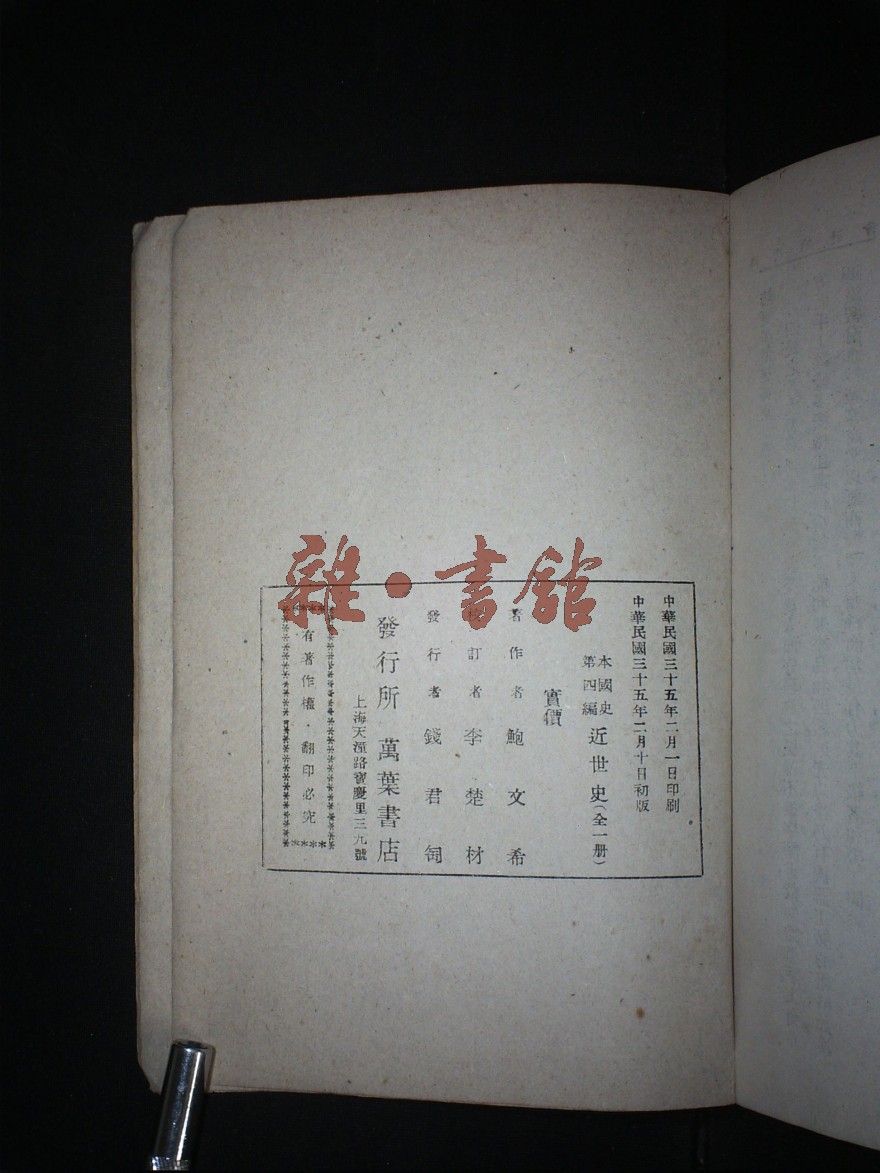 中華民國三十五年二月一日印刷
中華民國三十五年二月十日初版
本國史
第四編
近世史(全一册)
實價
著作者 鮑文希
校訂者 李楚材
發行者 錢君匋
發行所 萬葉書店
上海天潼路寶慶里三九號
有著作權·翻印必究
雜·書館